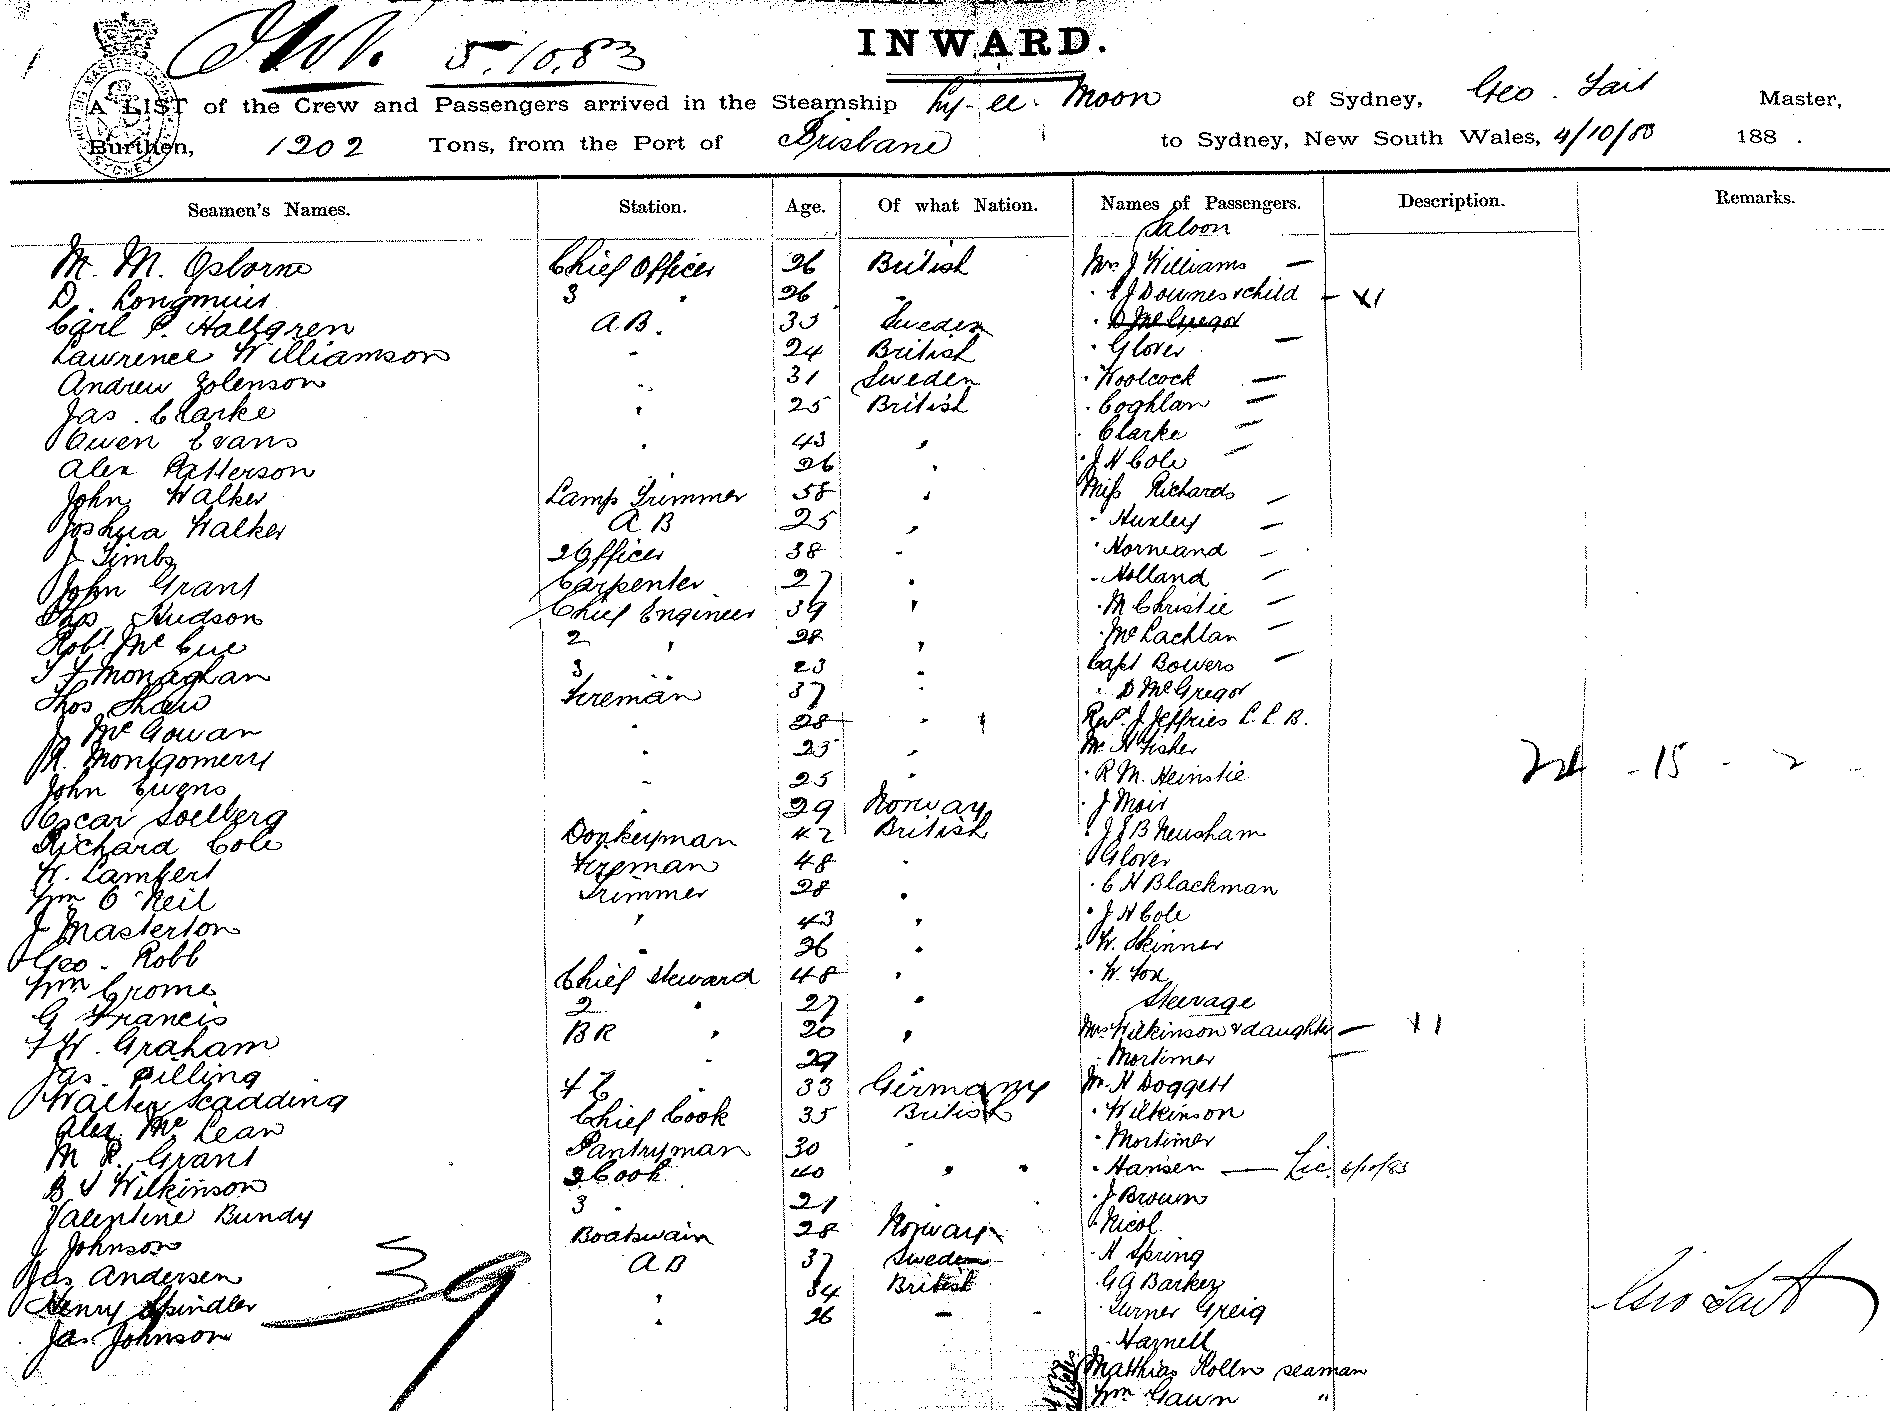 5.10.83
INWARD.
A LIST of the Crew and Passengers arrived in the Steamship Ly-ee-Moon of Sydney, Geo. Lait Master,
Burthen, 1202 Tons, from the Port of Brisbane to Sydney, New South Wales, 4/10/83 188 .
Seamen's Names. Station. Age. Of what Nation. Names of Passengers. Description. Remarks.
Saloon
M. M. Osborne Chief Officer 26 British Mrs J Williams —
D. Longmuir 3 " 26 " " C J Downes & child — X1
Carl P. Hallgren A.B. 33 Sweden " D McGregor
Lawrence Williamson " 24 British " Glover —
Andrew " 31 Sweden " Woolcock —
Jas. Clarke " 25 British " Coghlan —
Owen Evans " 43 " " Clarke —
Alex Patterson " 26 " " J H Cole —
John Walker Lamp Trimmer 58 " Miss Richards —
Joshua Walker A B 25 " " Huxley —
J Timbs 2 Officer 38 " " Horneand —
John Grant Carpenter 27 " " Holland —
Thos Hudson Chief Engineer 39 " " M Christie —
Robt McCue 2 " 28 " " McLachlan —
T F Monaghan 3 " 23 " Capt Bowers —
Thos Shaw Fireman 37 " " D McGregor
J McGowan " 28 " Revd. J Jeffries L.L.B.
R. Montgomery " 23 " Mr H Fisher
John Ewens " 25 " " R M. Heinstie
Oscar Soelberg " 29 Norway " J Moir
Richard Cole Donkeyman 42 British " J J B Neusham
W. Lambert Fireman 48 " " Glover
Wm O'Neil Trimmer 28 " " C H Blackman
J Masterton " 43 " " J H Cole
Geo. Robb " 36 " " W. Skinner
Wm Crome Chief Steward 48 " " W. Fox
Steerage
G Francis 2 " 27 "
F W. Graham BR " 20 " Mrs Wilkinson & daughter — X1
Jas. Pilling " 29 " Mortimer —
Walter Scadding F C " 33 Germany Mr H Doggett
Alex. McLean Chief Cook 35 British " Wilkinson
M R. Grant Pantryman 30 " " Mortimer
B J Wilkinson 2 Cook 40 " " " Hansen — Lic. 6/10/83
Valentine Bundy 3 " 21 " " J Brown
J Johnson Boatswain 28 Norway " Nicol
Jas Andersen A B 37 Sweden " H Spring
Henry Spindler " 34 British " G G Barker
Jas Johnson " 26 " " " Turner Greig
" Harnell
Matthias Kolln seaman
Wm Gawn "
39
15
Geo Lait